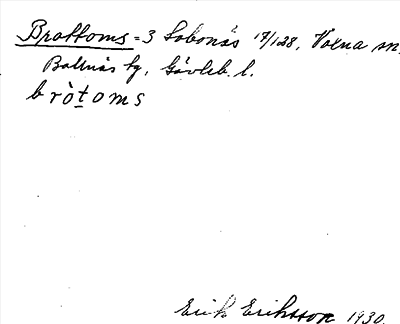 Brattoms = 3 Sobonäs 17/128, Voxna sn,
Bollnäs tg, Gävleb. l.
bròtoms
Erik Eriksson 1930.